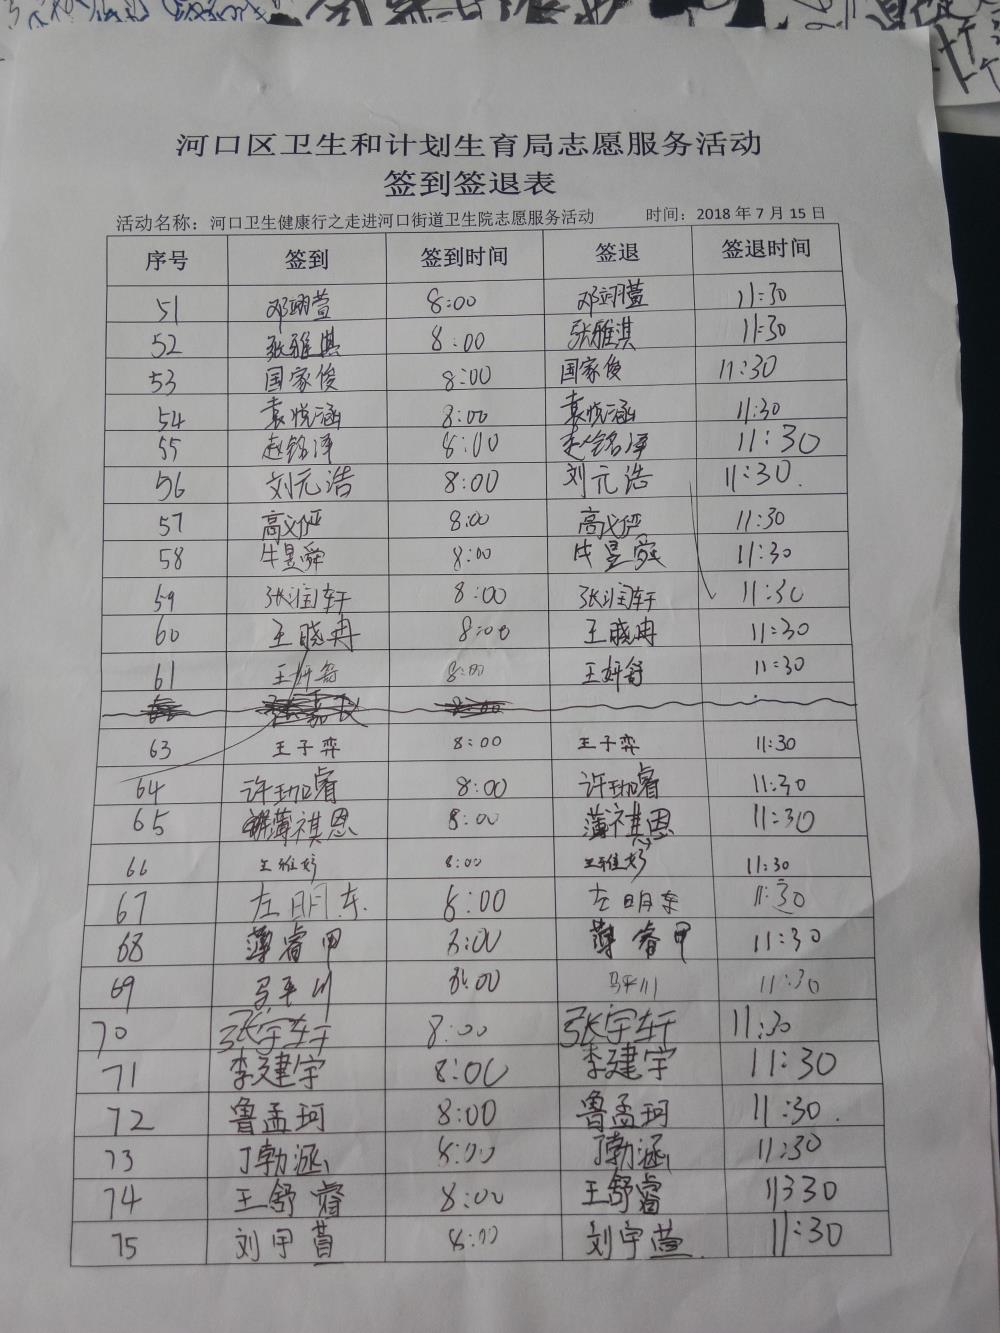 河口区卫生和计划生育局志愿服务活动
签到签退表
活动名称：河口卫生健康行之走进河口街道卫生院志愿服务活动 时间：2018 年 7 月 15 日
序号 签到 签到时间 签退 签退时间
51 邓翊萱 8:00 邓翊萱 11:30
52 张雅淇 8:00 张雅淇 11:30
53 国家俊 8:00 国家俊 11:30
54 袁悦涵 8:00 袁悦涵 11:30
55 赵铭泽 8:00 赵铭泽 11:30
56 刘元浩 8:00 刘元浩 11:30.
57 高义俨 8:00 高义俨 11:30
58 牛昱舜 8:00 牛昱舜 11:30
59 张润轩 8:00 张润轩 11:30
60 王晓冉 8:00 王晓冉 11:30
61 王妍舒 8:00 王妍舒 11:30
63 王子弈 8:00 王子弈 11:30
64 许珈睿 8:00 许珈睿 11:30
65 薄祺恩 8:00 薄祺恩 11:30
66 王雅婷 8:00 王雅婷 11:30
67 左明东 8:00 左明东 11:30
68 薄睿甲 8:00 薄睿甲 11:30
69 马平川 8:00 马平川 11:30
70 张宇轩 8:00 张宇轩 11:30
71 李建宇 8:00 李建宇 11:30
72 鲁孟珂 8:00 鲁孟珂 11:30.
73 丁勃涵 8:00 丁勃涵 11:30
74 王舒睿 8:00 王舒睿 11:30
75 刘宇萱 8:00 刘宇萱 11:30